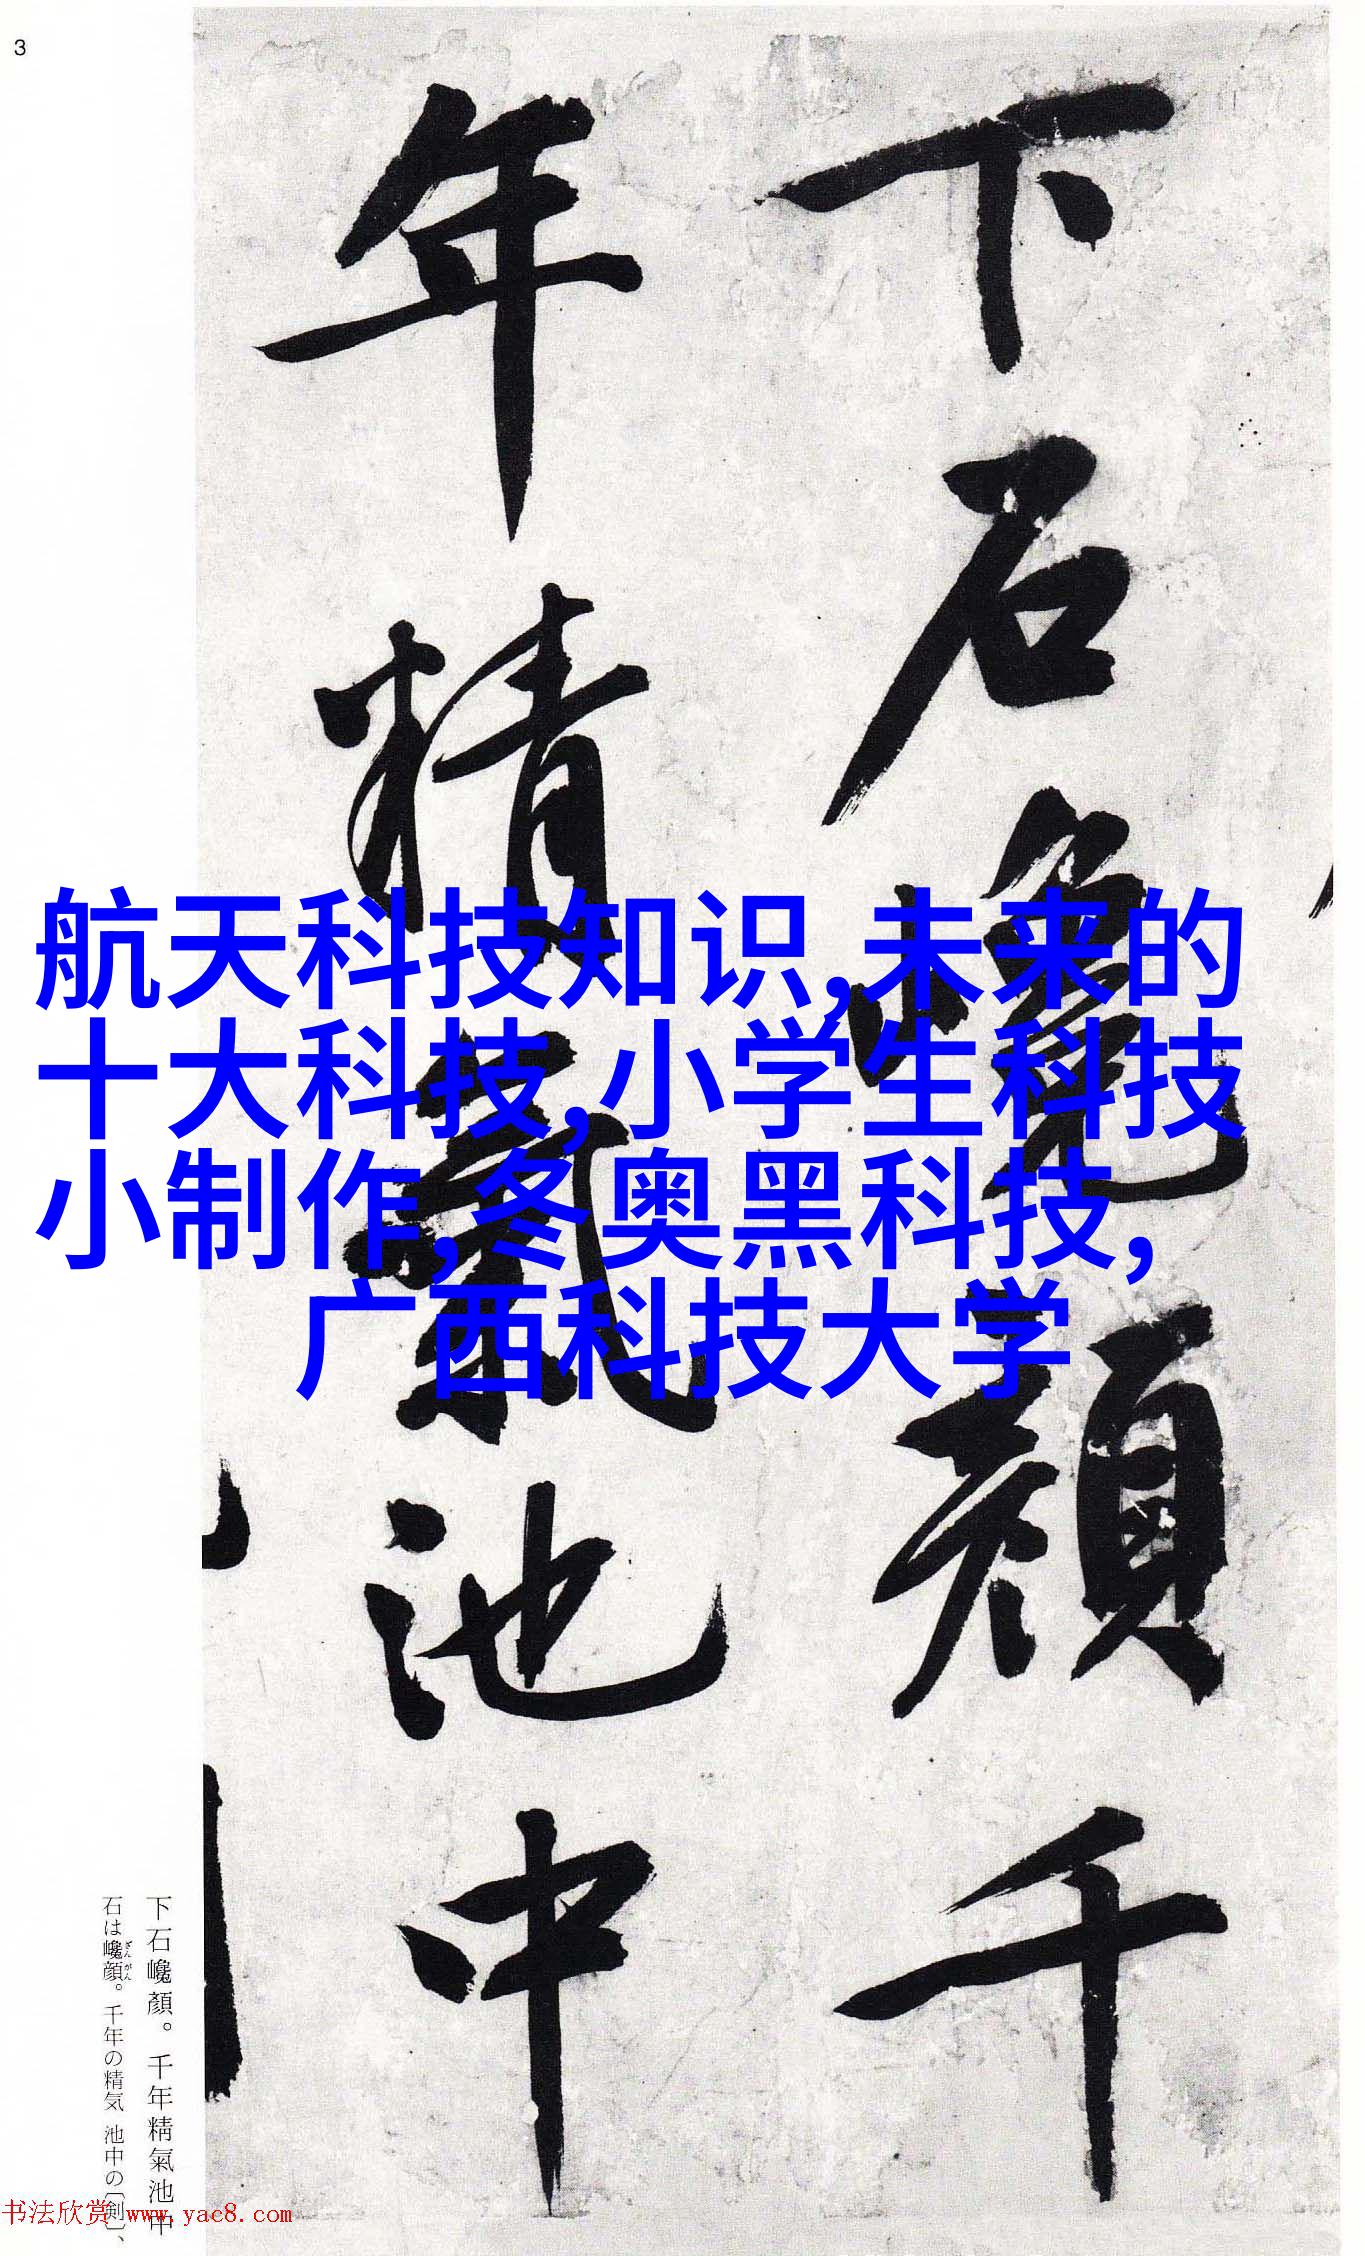 3
下石巉顏千
年精氣池中
航天科技知识,未来的
十大科技,小学生科技
小制作,冬奥黑科技,
广西科技大学
下石巉顏。千年精氣池中
石は巉顔。千年の精気 池中の〔剣〕、
ざんがん
书法欣赏 www.yac8.com